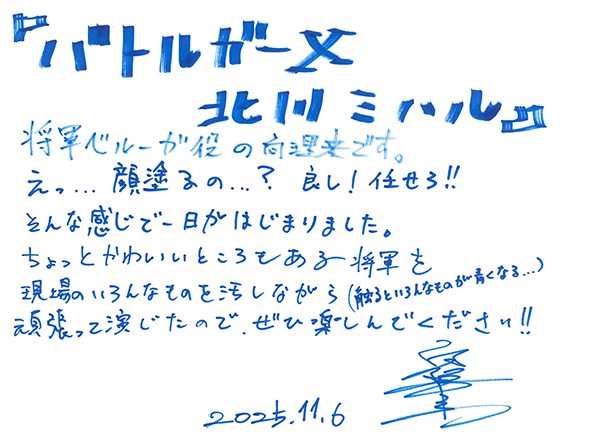 『バトルガーX
北川ミハル』
将軍ベルーガ役の向理来です。
えっ…顔塗るの…? 良し!任せろ!!
そんな感じで一日がはじまりました。
ちょっとかわいいところもある将軍を
現場のいろんなものを汚しながら(触るといろんなものが青くなる…)
頑張って演じたので、ぜひ楽しんでください!!
2025.11.6